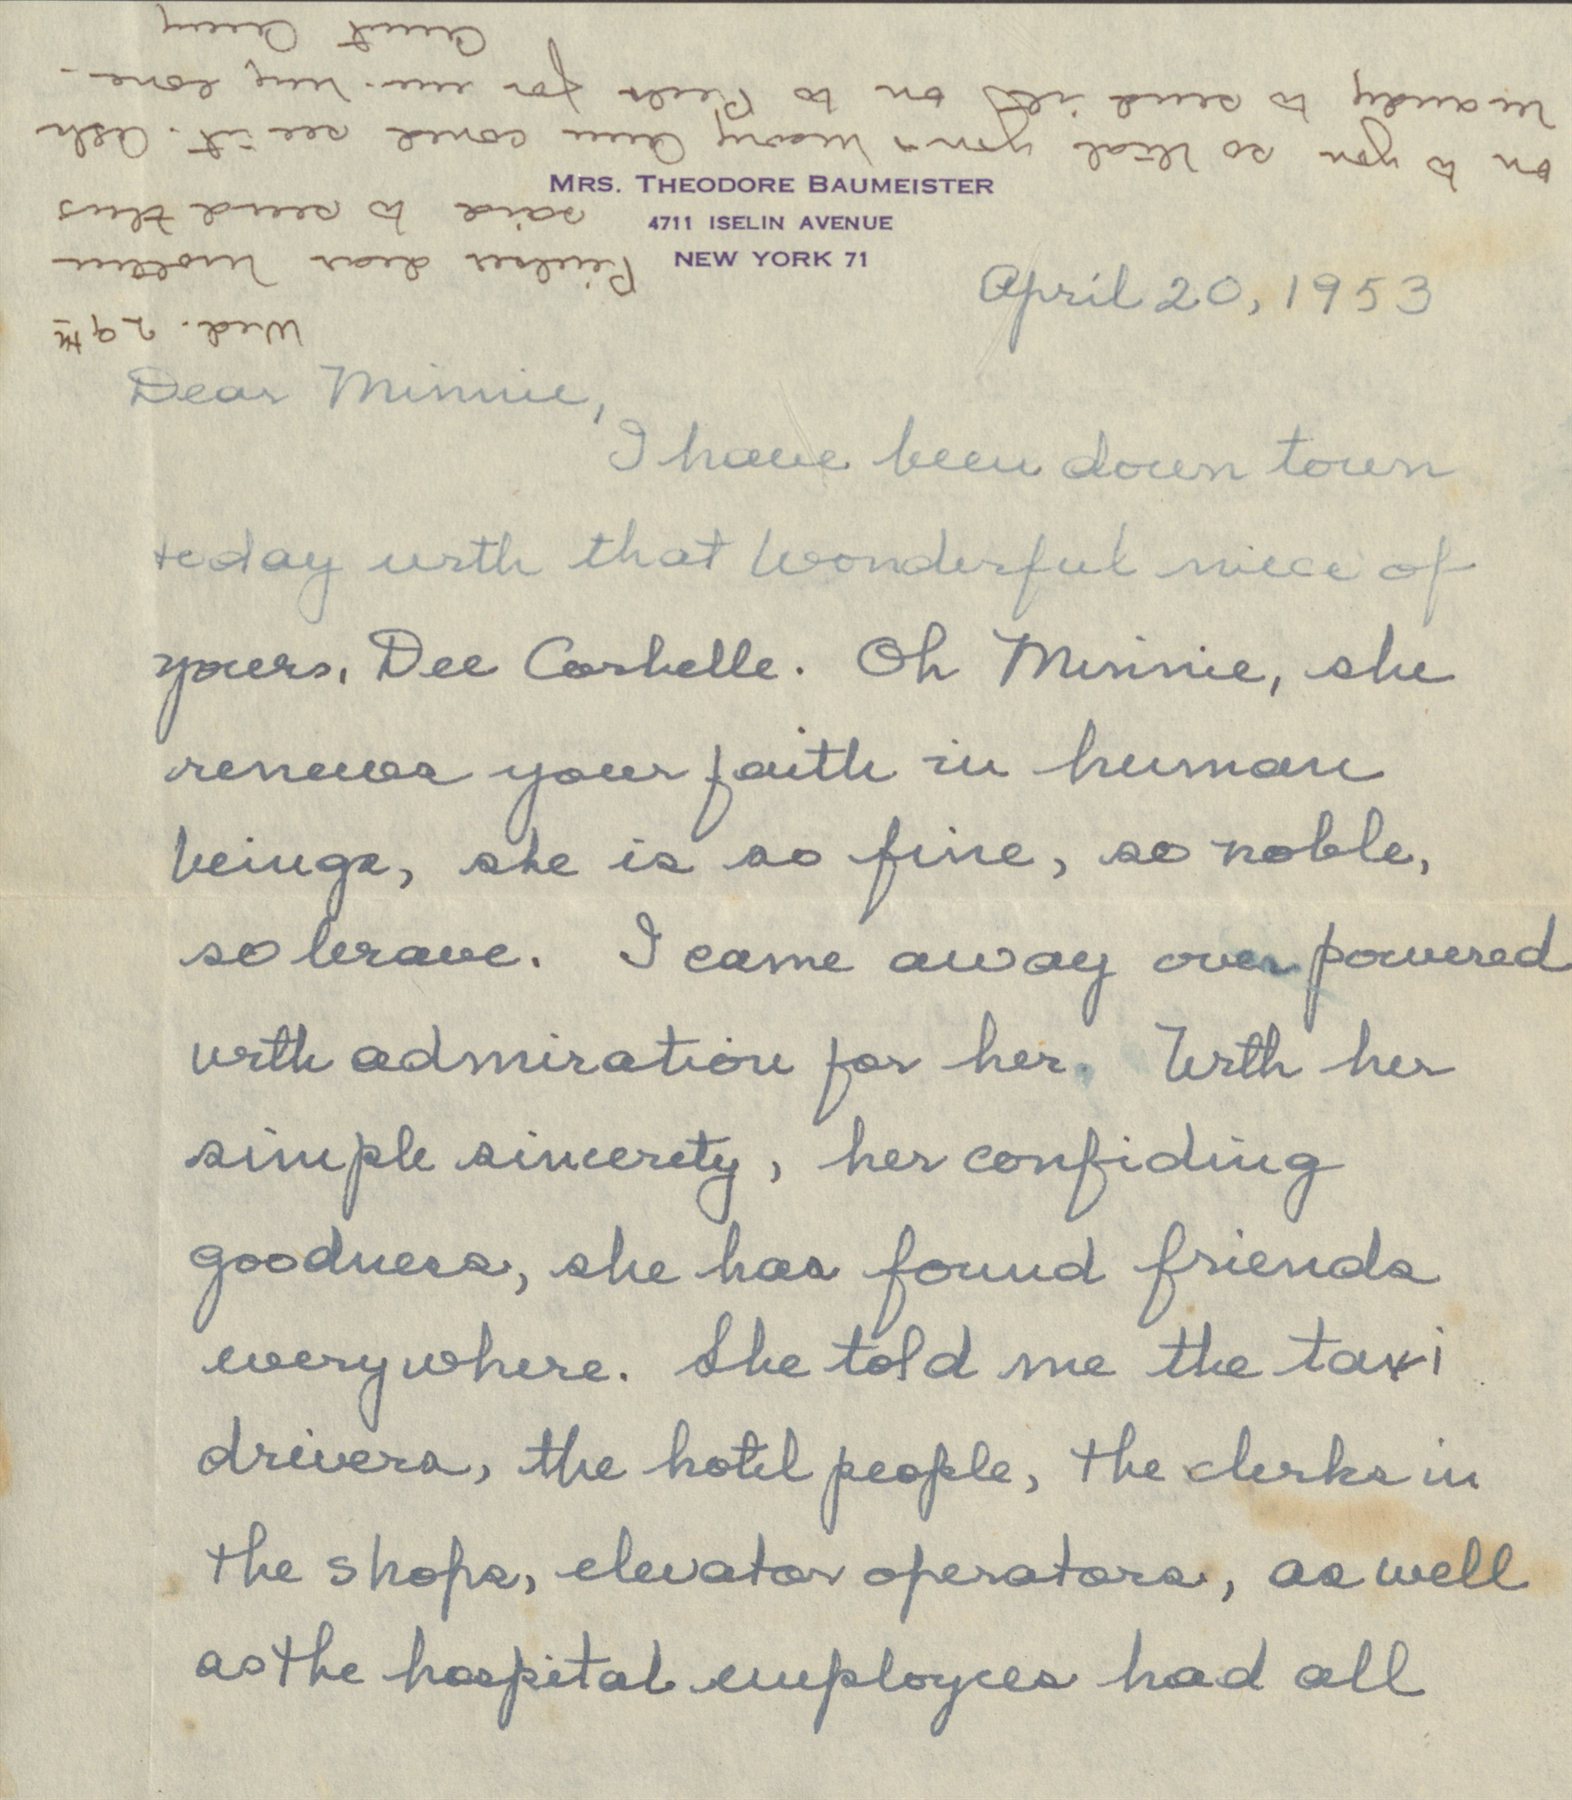 MRS. THEODORE BAUMEISTER
4711 ISELIN AVENUE
NEW YORK 71
April 20, 1953
Dear Minnie,
I have been down town
today with that wonderful niece of
yours, Dee Corbelle. Oh Minnie, she
renews your faith in human
beings, she is so fine, so noble,
so brave. I came away over powered
with admiration for her. With her
simple sincerety, her confiding
goodness, she has found friends
everywhere. She told me the taxi
drivers, the hotel people, the clerks in
the shops, elevator operators, as well
as the hospital employees had all
Wed. 29th
dear
said to send this
on to you so that you & Mary Ann could see it. Ask
Mandy to send it on to for me. My love.
Aunt Amy